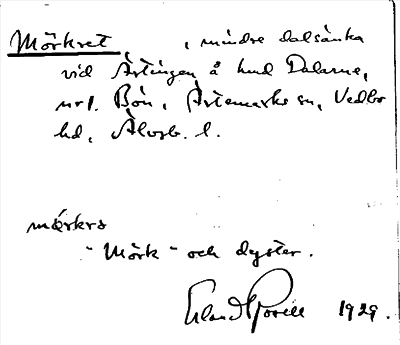 Mörkret, , mindre dalsänka
vid Ärtingen å hmd Dalarne,
nr 1. Bön, Ärtemarks sn, Vedbo
hd, Älvsb. l.
mœrkrə
"Mörk" och dyster.
1929.